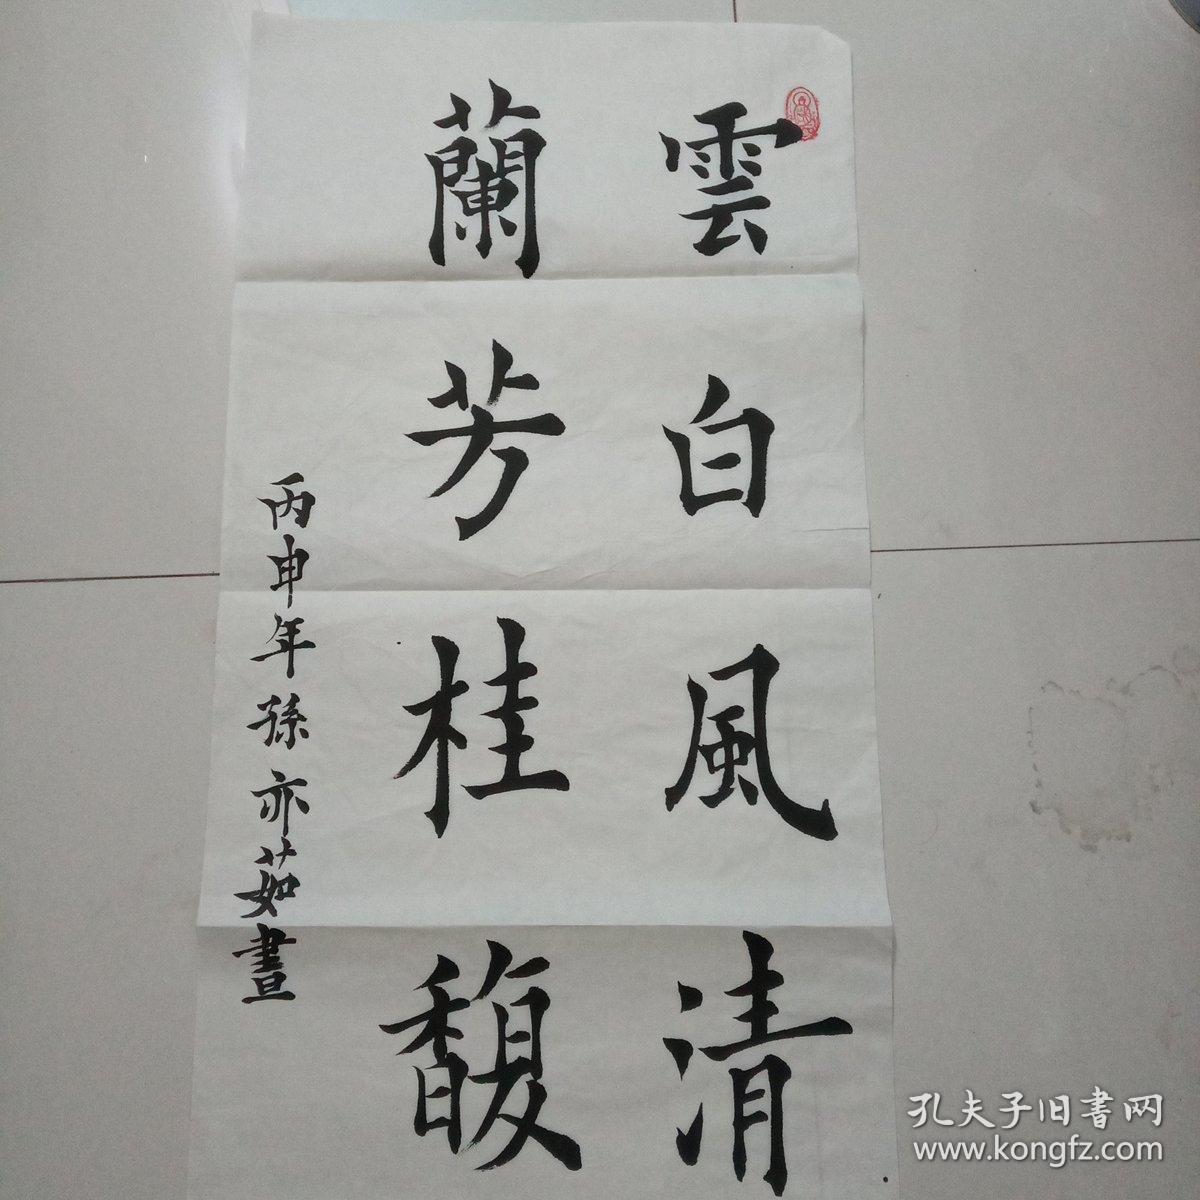 雲白風清
蘭芳桂馥
丙申年孫亦茹書
孔夫子旧書网
www.kongfz.com